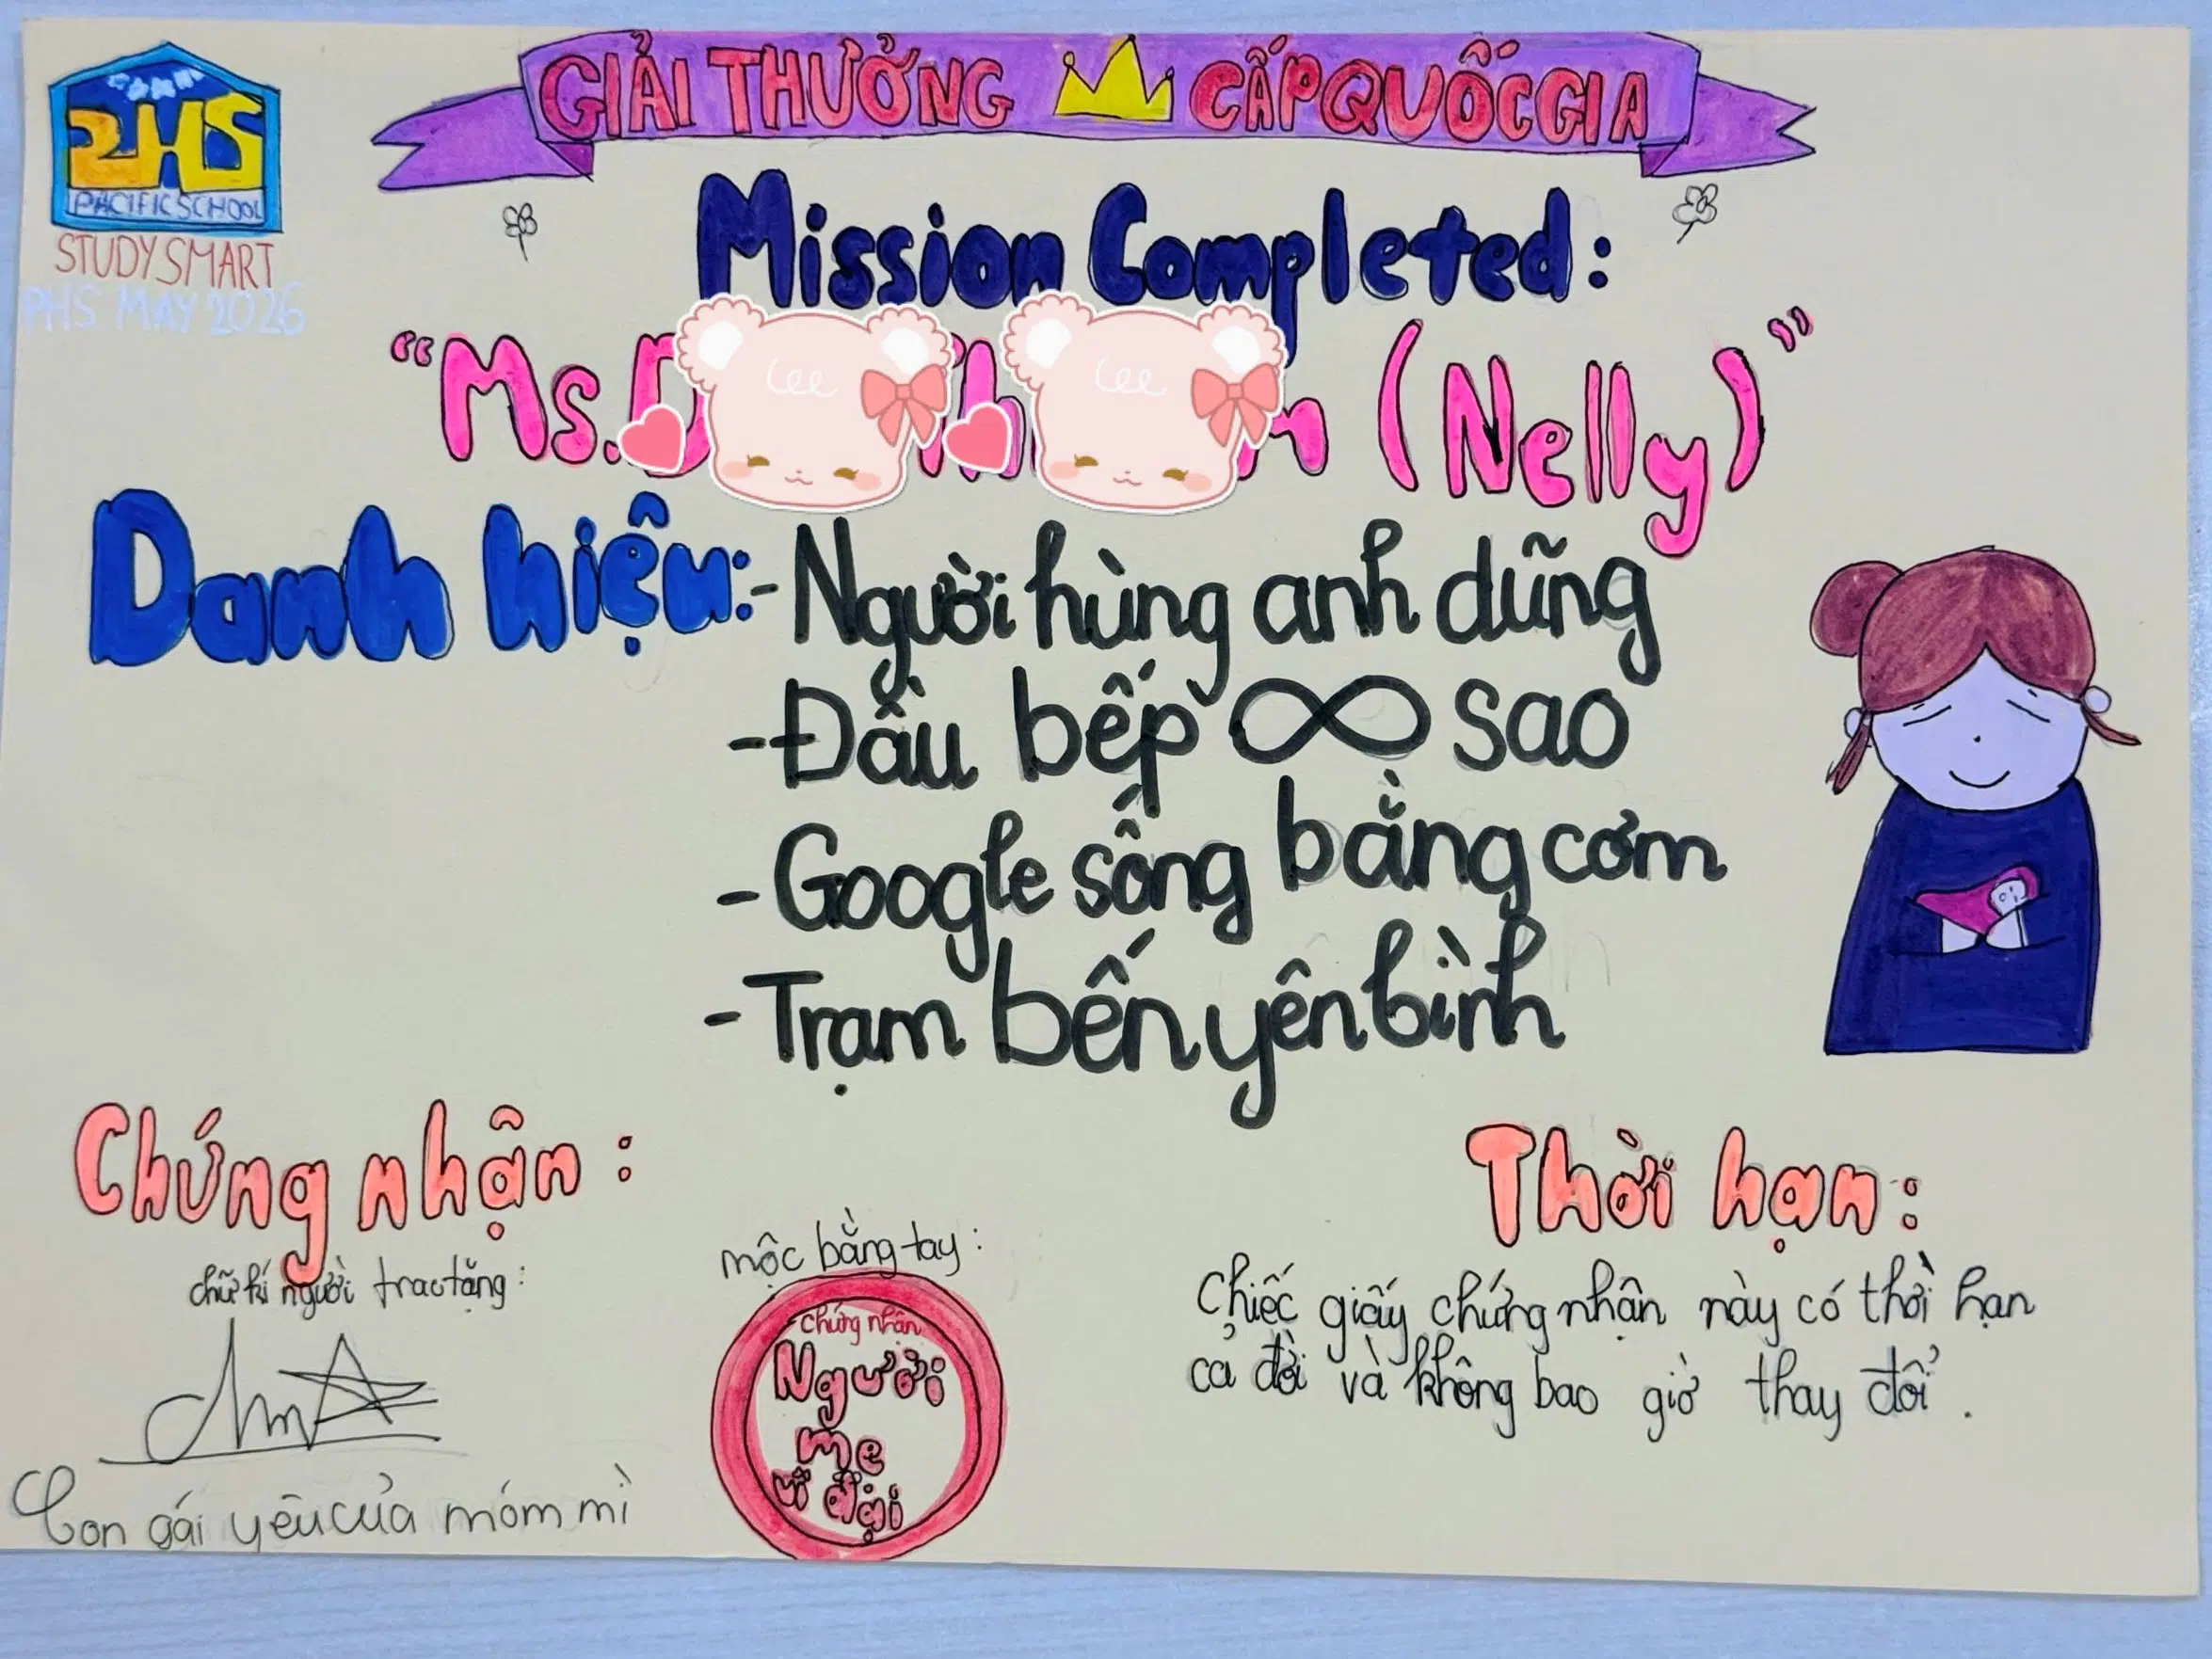 GIẢI THƯỞNG CẤP QUỐC GIA
PHS
PACIFIC SCHOOL
STUDY SMART
PHS MAY 2026
Mission Completed:
“Ms. (Nelly)”
Lee Lee
Danh hiệu: - Người hùng anh dũng
- Đầu bếp ∞ sao
- Google sống bằng cơm
- Trạm bến yên bình
Chứng nhận:
chữ kí người trao tặng:
Con gái yêu của móm mì
mộc bằng tay:
chứng nhận
Người
mẹ
vĩ đại
Thời hạn:
Chiếc giấy chứng nhận này có thời hạn
cả đời và không bao giờ thay đổi.